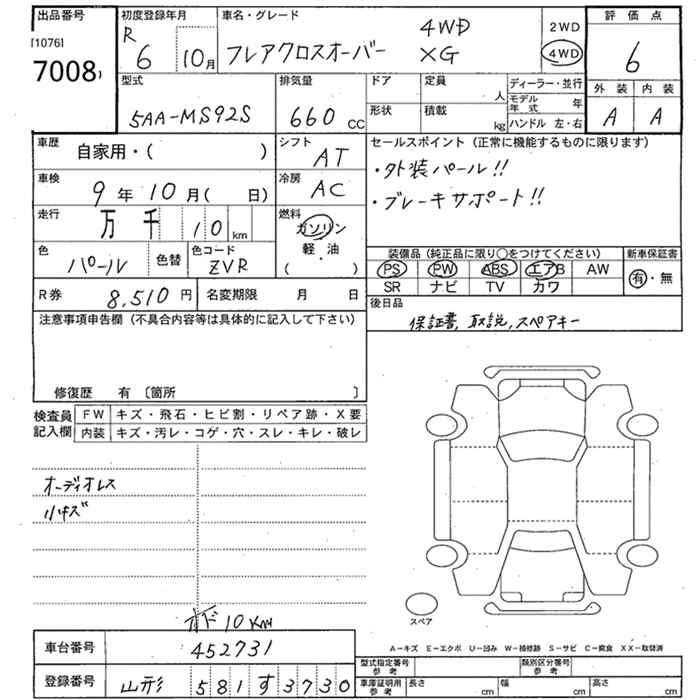 出品番号 初度登録年月 車名・グレード 評価点
[1076] R 4WD 2WD
7008 6 10月 フレアクロスオーバー XG 4WD 6
型式 排気量 ドア 定員 ディーラー・並行 外装 内装
5AA-MS92S 660 cc 人 モデル年式 年 A A
形状 積載 kg ハンドル 左・右
車歴 自家用・( ) シフト AT セールスポイント(正常に機能するものに限ります)
車検 9年10月( 日) 冷房 AC ・外装パール!!
・ブレーキサポート!!
走行 万 千 10 km 燃料 ガソリン
軽・油
( )
色 パール 色替 色コード ZVR 装備品(純正品に限り○をつけてください) 新車保証書
PS PW ABS エアB AW 有・無
SR ナビ TV カワ
R券 8,510円 名変期限 月 日 後日品
保証書, 取説, スペアキー
注意事項申告欄(不具合内容等は具体的に記入して下さい)
修復歴 有 〔箇所 〕
検査員 FW キズ・飛石・ヒビ割・リペア跡・X要
記入欄 内装 キズ・汚レ・コゲ・穴・スレ・キレ・破レ
オーディオレス
小キズ
スペア
オド 10KM
車台番号 452731
A-キズ E-エクボ U-凹み W-補修跡 S-サビ C-腐食 XX-取替済
登録番号 山形 581 す 3730
型式指定番号 参考 類別区分番号 参考
車庫証明用 参考 長さ cm 幅 cm 高さ cm